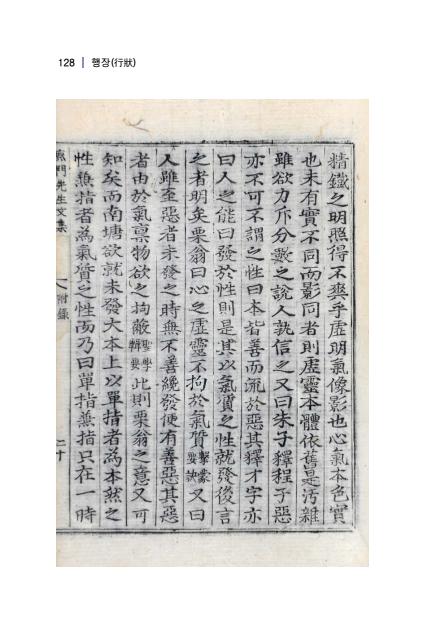 128 | 행장(行狀)
精鐵之明照得不爽乎虛明氣像影也心氣本色實
也未有實不同而影同者則虛靈本體依舊是汚雜
雖欲力斥分數之說人孰信之又曰朱子釋程子惡
亦不可不謂之性曰本皆善而流於惡其釋才字亦
曰人之能曰發於性則是其以氣質之性就發後言
之者明矣栗翁曰心之虛靈不拘於氣質擊蒙要訣又曰
人雖至惡者未發之時無不善纔發便有善惡其惡
者由於氣稟物欲之拘蔽聖學輯要此則栗翁之意又可
知矣而南塘欲就未發大本上以單指者為本然之
性兼指者為氣質之性而乃曰單指兼指只在一時
鹿門先生文集 附錄 二十